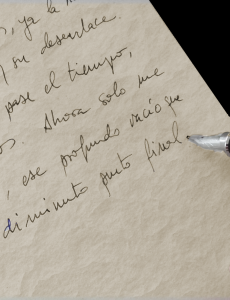 , ya la
y su desenlace.
pase el tiempo,
os. Ahora solo me
, ese profundo vacío que
diminuto punto final